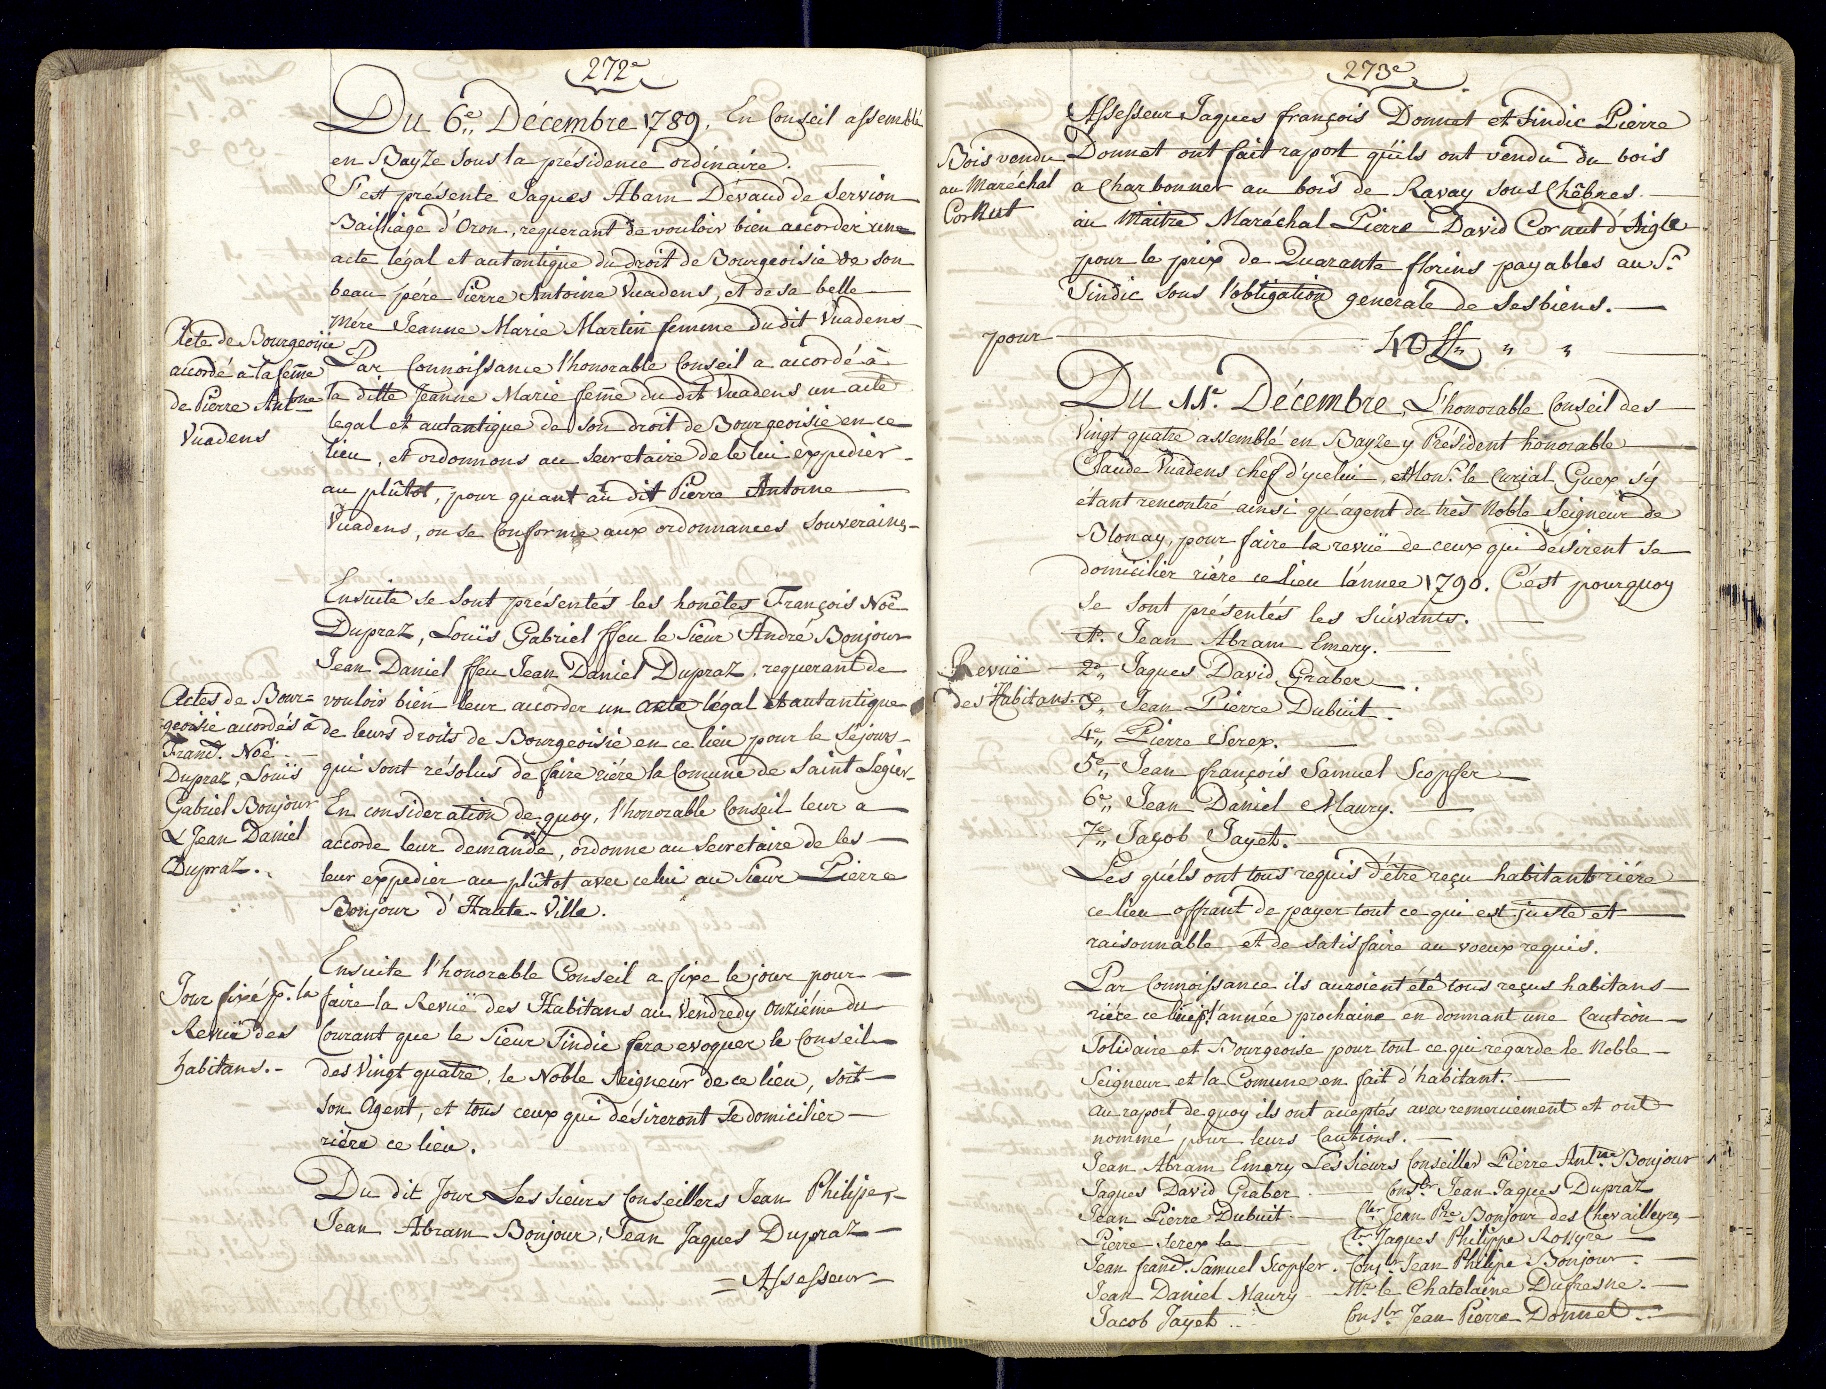 272e
Du 6e,, Décembre 1789. En Conseil assemblé
en Bayze sous la présidence ordinaire.
S'est présente Jaques Abam Dévaud de Servion
Bailliage d'Oron, requerant de vouloir bien accorder une
acte légal et autantique du droit de Bourgeoisie de son
beau pére Pierre Antoine Vuadens, et de sa belle
mére Jeanne Marie Martin femme du dit Vuadens
Acte de Bourgeoisie
accordé à la feme
de Pierre Antone
Vuadens
Par Connoissance l'honorable Conseil a accordé à
la ditte Jeanne Marie feme du dit Vuadens un acte
legal et autantique de son droit de Bourgeoisie en ce
lieu, et ordonnons au secretaire de le lui expedier
au plûtot, pour quant au dit Pierre Antoine
Vuadens, on se conforme aux ordonnances souveraines
Ensuite se sont présentés les honêtes François Noé
Dupraz, Louïs Gabriel ffeu le sieur André Bonjour
Jean Daniel ffeu Jean Daniel Dupraz, requerant de
Actes de Bour=
geoisie accordés à
Franç. Noé
Dupraz, Louïs
Gabriel Bonjour
& Jean Daniel
Dupraz.
vouloir bien leur accorder un acte légal et autantique
de leurs droits de Bourgeoisie en ce lieu pour le séjours
qui sont résolus de faire riére la Comune de Saint Legier
En consideration de quoy, l'honorable Conseil leur a
accorde leur demande, ordonne au secretaire de les
leur expedier au plûtot avec celui au sieur Pierre
Bonjour d'Haute-Ville.
Ensuite l'honorable Conseil a fixe le jour pour
Jour fixé p. la
Revuë des
habitans.
faire la Revuë des Habitans au Vendredy onziéme du
Courant que le Sieur Sindic fera evoquer le Conseil
des Vingt quatre, le Noble Seigneur de ce lieu, soit
son Agent, et tous ceux qui désireront se domicilier
riére ce lieu.
Du dit Jour Les sieurs Conseillers Jean Philipe,
Jean Abram Bonjour, Jean Jaques Dupraz
= Assesseur
273e
Assesseur Jaques françois Donnet et Sindic Pierre
Bois vendu
au Maréchal
Cornut
Donnet ont fait raport qu'ils ont vendu du bois
a Charbonner au bois de Ravay sous Chêbres
au Maitre Maréchal Pierre David Cornut d'Aigle
pour le prix de Quarante florins payables au Sr.
Sindic sous l'obligation generale de ses biens.
pour 40 ff,, " "
Du 11e. Décembre, L'honorable Conseil des
Vingt quatre assemblé en Bayze y Président honorable
Claude Vuadens chef d'ycelui, et Monsr. le Curial Guex s'y
étant rencontré ainsi qu'agent du très Noble Seigneur de
Blonay, pour faire la revuë de ceux qui désirent se
domicilier riére ce lieu l'annee 1790. C'est pourquoy
se sont présentés les suivants.
Revuë
des Habitans.
1e. Jean Abram Emery.
2e,, Jaques David Graber
3e,, Jean Pierre Dubuit.
4e,, Pierre Serex.
5e,, Jean françois Samuel Scopfer
6e,, Jean Daniel Maury.
7e,, Jacob Jayet.
Les quéls ont tous requis d'être reçu habitants riére
ce lieu offrant de payer tout ce qui est juste et
raisonnable et de satisfaire au voeux requis.
Par Connoissance ils auroient été tous reçus habitans
riére ce lieu p. l'année prochaine en donnant une Caution
Solidaire et Bourgeoise pour tout ce qui régarde le Noble
Seigneur et la Comune en fait d'habitant.
au raport de quoy ils ont acceptés avec remerciement et ont
nommé pour leurs Cautions.
Jean Abram Emery Les sieurs Conseiller Pierre Antne Bonjour
Jaques David Graber Consler Jean Jaques Dupraz
Jean Pierre Dubuit Cller Jean Pre Bonjour des Chevalleyres
Pierre Serex le Cler Jaques Philippe Rossyre
Jean franç. Samuel Scopfer. Consr Jean Philipe Bonjour.
Jean Daniel Maury Mr. le Chatelaine Dufresne.
Jacob Jayet Conslr Jean Pierre Donnet.